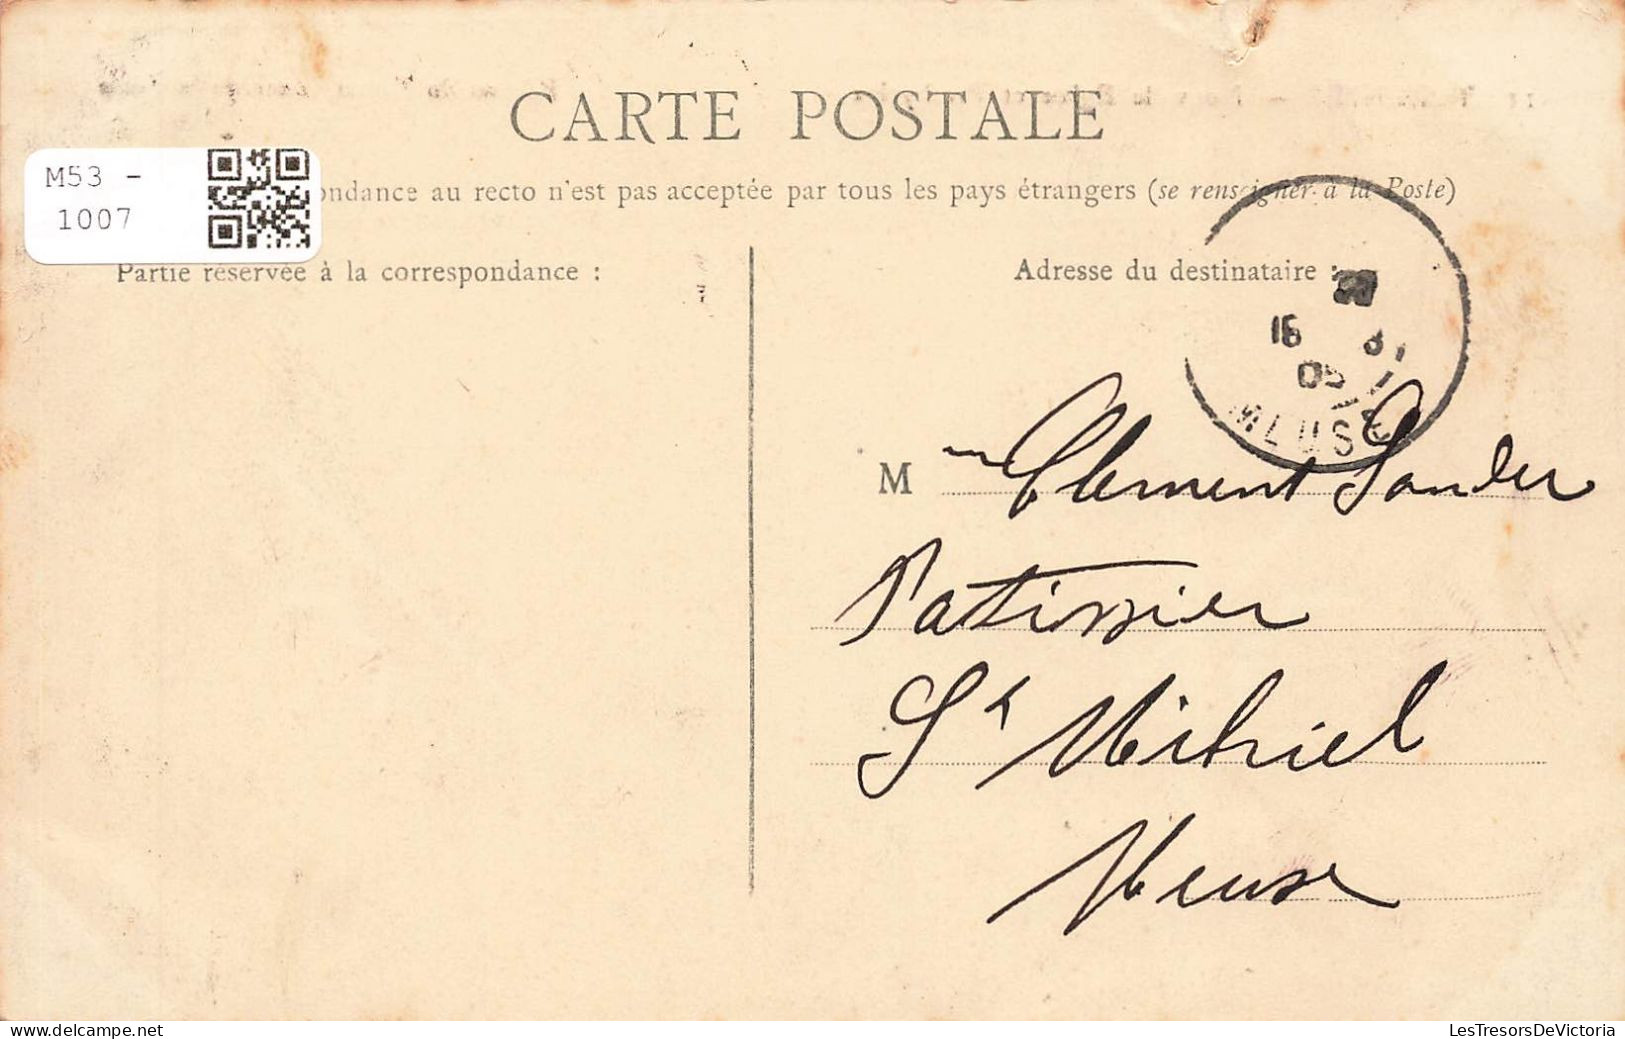 CARTE POSTALE
M53 -
1007
ondance au recto n'est pas acceptée par tous les pays étrangers (se renseigner à la Poste)
Partie réservée à la correspondance :
Adresse du destinataire :
16
05
MEUSE
M me Clement Sander
Patissier
St Mihiel
Meuse
LesTresorsDeVictoria
delcampe.net